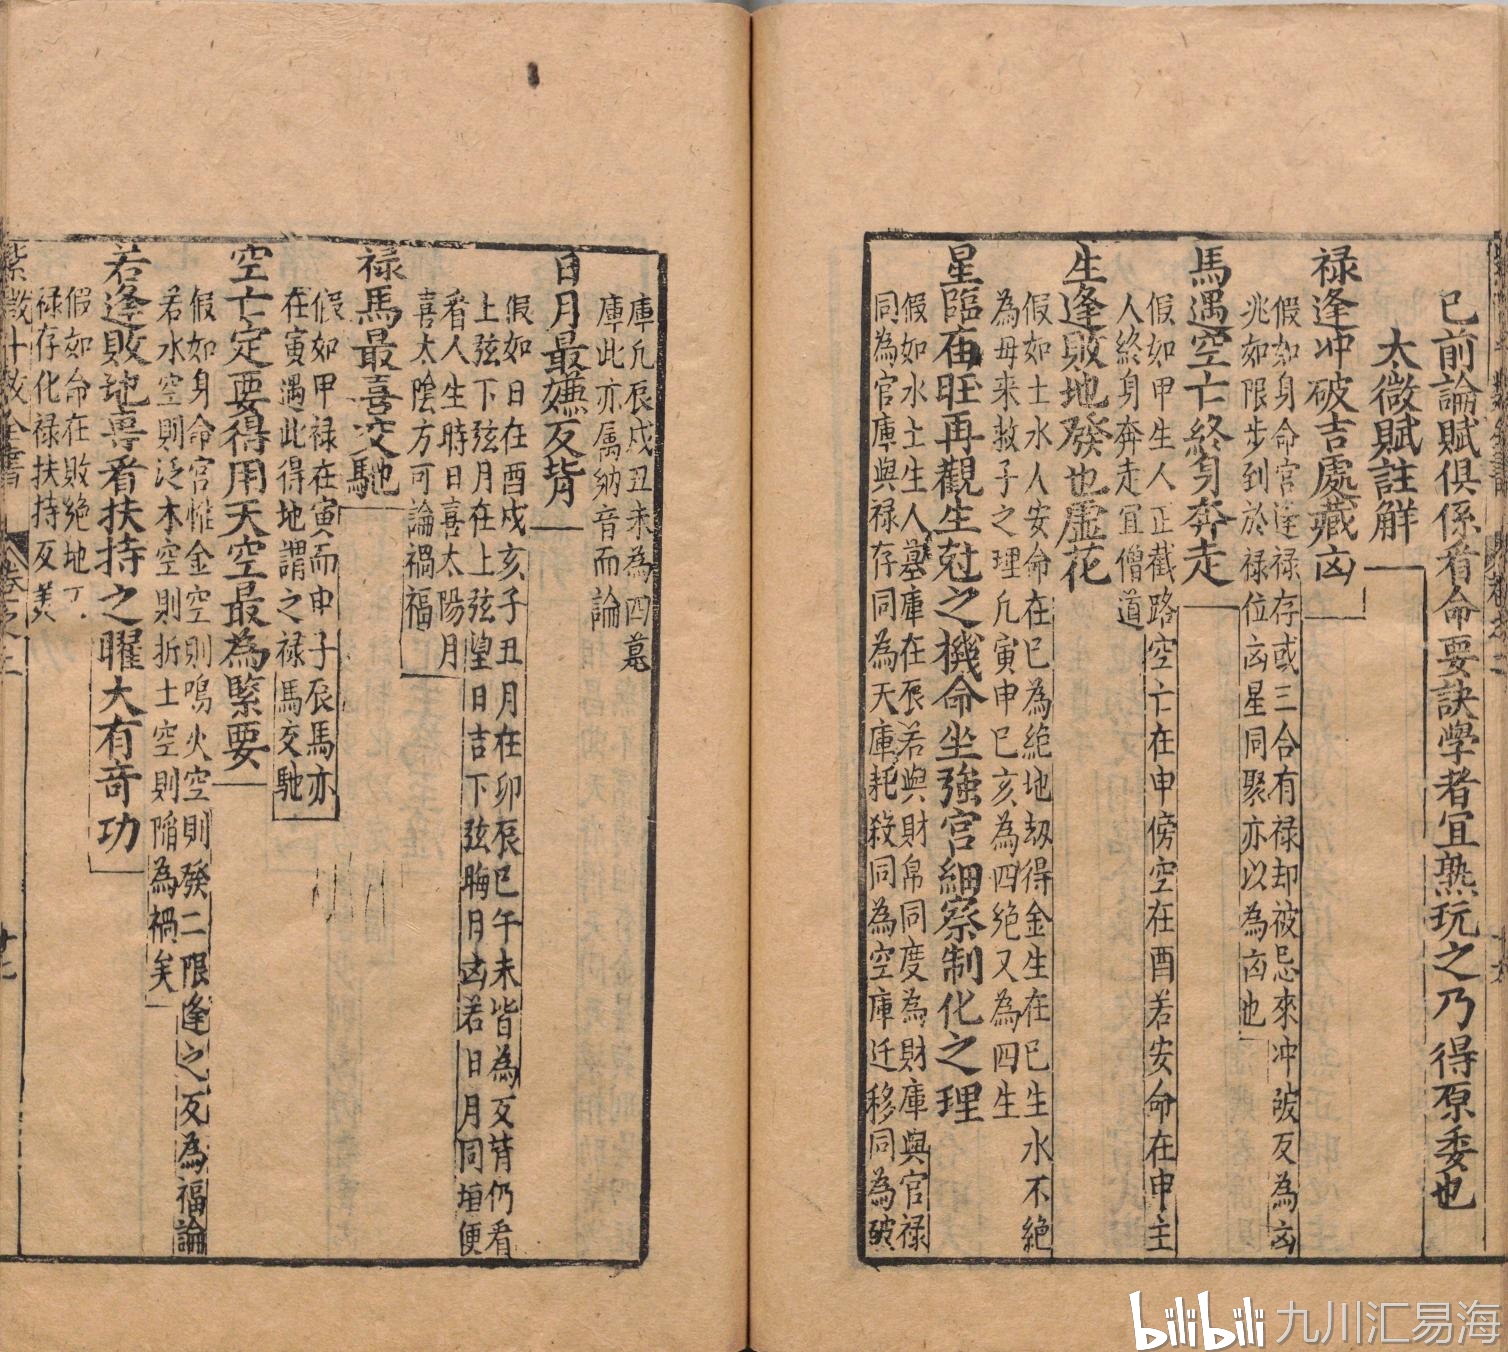 已前論賦俱係看命要訣學者宜熟玩之乃得原委也
太微賦註解
禄逢冲破吉處藏凶
假如身命宫逢禄存或三合有禄却被忌來冲破反為凶
兆如限步到於禄位凶星同聚亦以為凶也
馬遇空亡終身奔走
假如甲生人正截路空亡在申傍空在酉若安命在申主
人終身奔走宜僧道
生逢敗地發也虚花
假如土水人安命在巳為絶地刼得金生在巳生水不絶
為母來救子之理凡寅申巳亥為四絶又為四生
星臨庙旺再觀生尅之機命坐強宫細察制化之理
假如水土生人墓庫在辰若與財帛同度為財庫與官禄
同為官庫與禄存同為天庫耗殺同為空庫迁移同為破
庫凡辰戌丑未為四墓
庫此亦属納音而論
日月最嫌反背
假如日在酉戌亥子丑月在卯辰巳午未皆為反背仍看
上弦下弦月在上弦望日吉下弦晦月凶若日月同垣便
看人生時日喜太陽月
喜太陰方可論禍福
禄馬最喜交馳
假如甲禄在寅而申子辰馬亦
在寅遇此得地謂之禄馬交馳
空亡定要得用天空最為緊要
假如身命宫惟金空則鳴火空則發二限逢之反為福論
若水空則泛木空則折土空則陷為禍矣
若逢敗地専看扶持之曜大有奇功
假如命在敗絶地
禄存化禄扶持反美
卷之二
十七
九川汇易海
bilibili